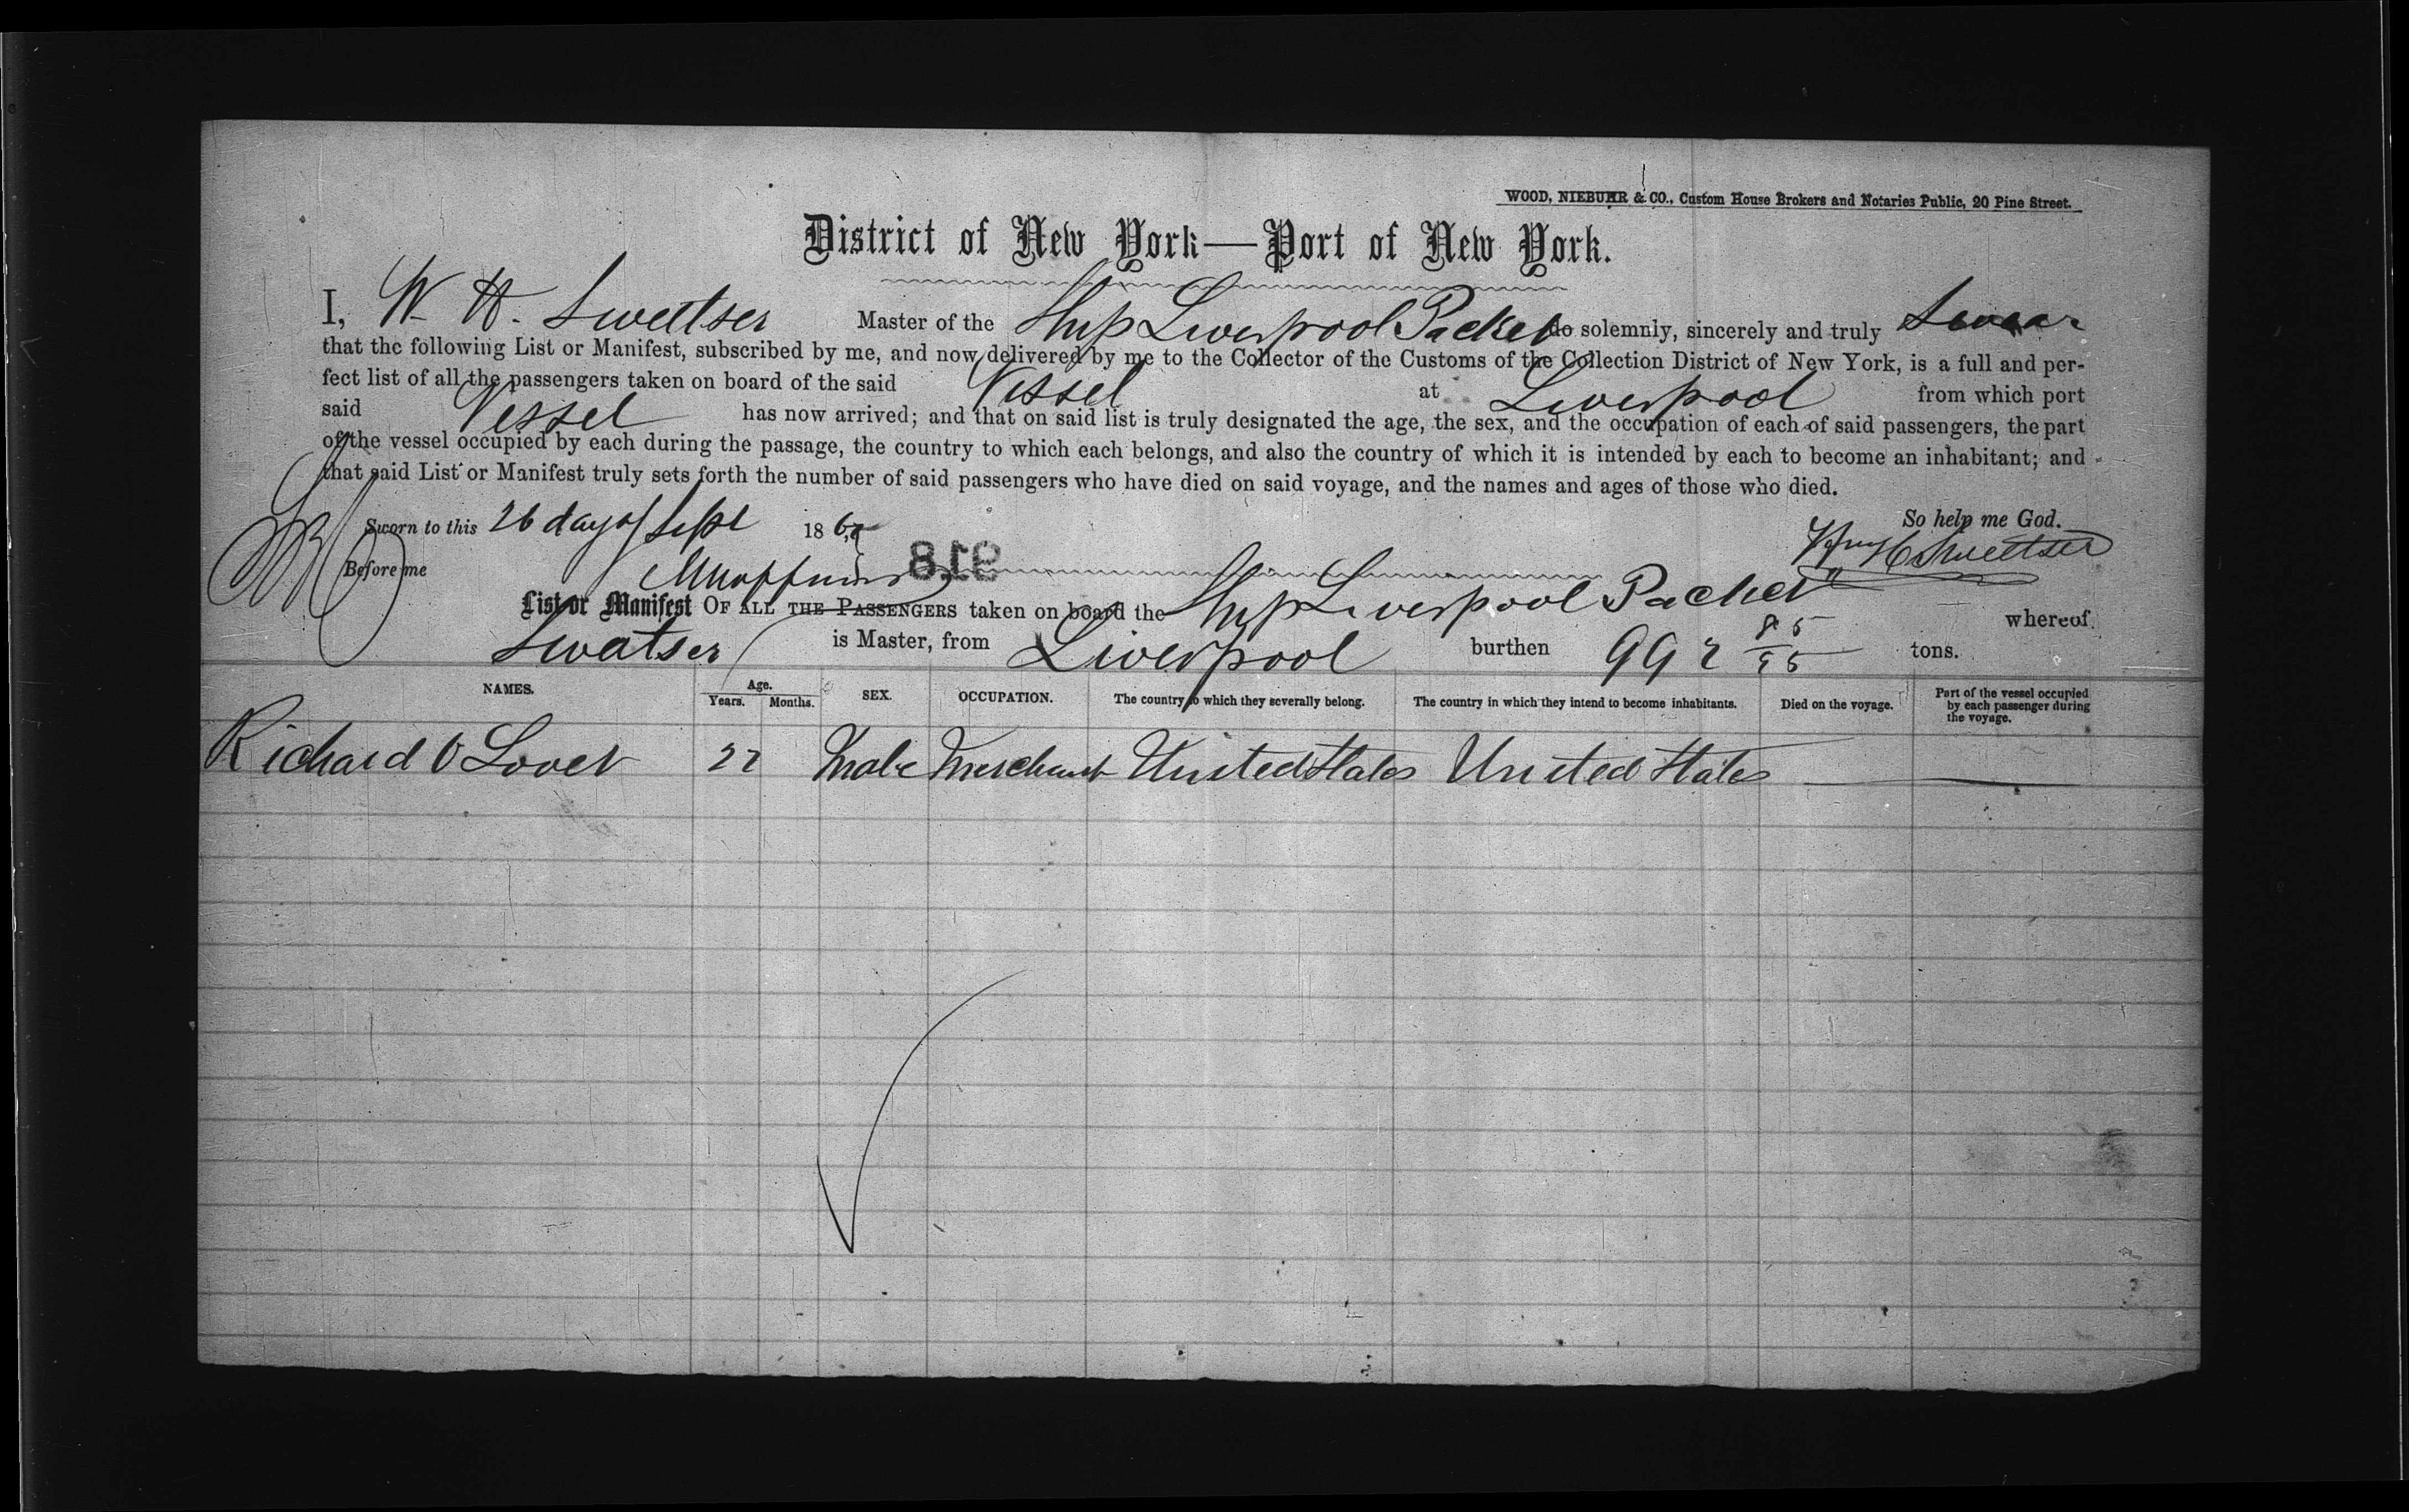 WOOD, NIEBUHR & CO., Custom House Brokers and Notaries Public, 20 Pine Street.
District of New York—Port of New York.
I, W. H. Sweetser Master of the Ship Liverpool Packet do solemnly, sincerely and truly Swear
that the following List or Manifest, subscribed by me, and now delivered by me to the Collector of the Customs of the Collection District of New York, is a full and per-
fect list of all the passengers taken on board of the said Vessel at Liverpool from which port
said Vessel has now arrived; and that on said list is truly designated the age, the sex, and the occupation of each of said passengers, the part
of the vessel occupied by each during the passage, the country to which each belongs, and also the country of which it is intended by each to become an inhabitant; and
that said List or Manifest truly sets forth the number of said passengers who have died on said voyage, and the names and ages of those who died.
So help me God.
Sworn to this 26 day of Sept 186
Sweetser
Before me
918
List or Manifest OF ALL THE PASSENGERS taken on board the Ship Liverpool Packet whereof
Swetser is Master, from Liverpool burthen 992 85/95 tons.
NAMES. Age. Years. Months. SEX. OCCUPATION. The country to which they severally belong. The country in which they intend to become inhabitants. Died on the voyage. Part of the vessel occupied by each passenger during the voyage.
Richard O Lovet 22 Male Merchant United States United States